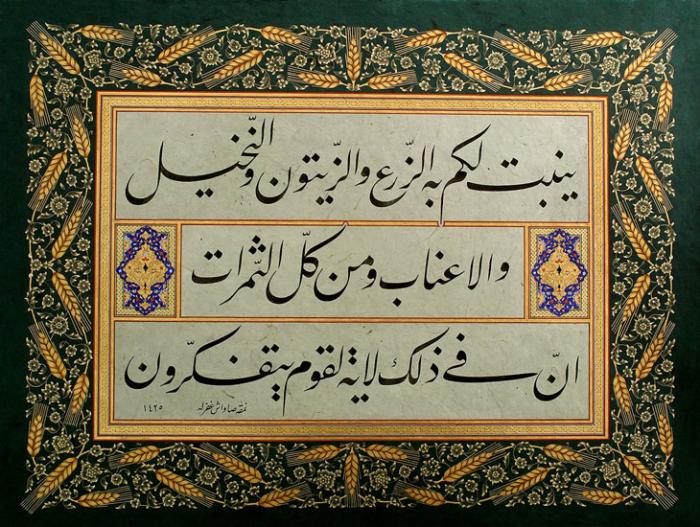 ينبت لكم به الزّرع والزّيتون والنّخيل
والاعناب ومن كلّ الثّمرات
انّ فے ذلك لاية لقوم يتفكّرون
نمقه صاواش غفر له ١٤٢٥